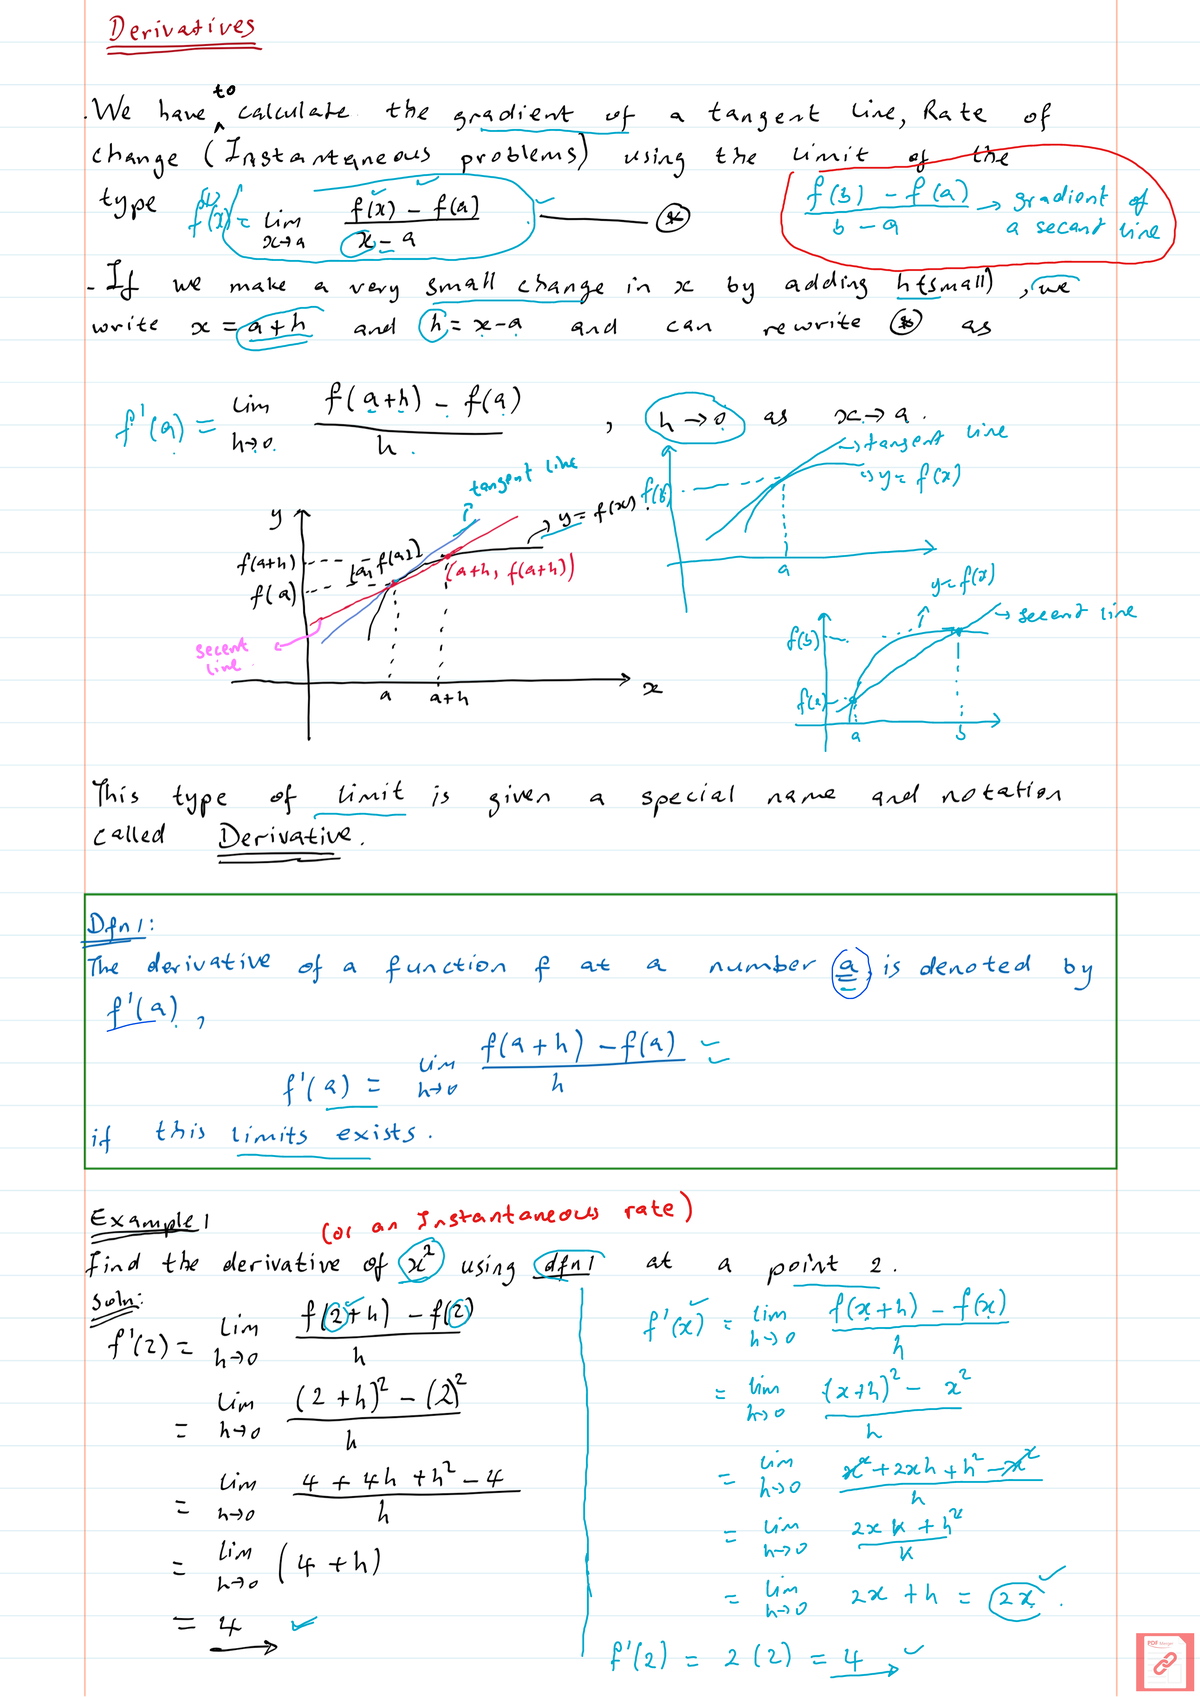 Derivatives
to
. We have ^ calculate the gradient of a tangent line, Rate of
change (Instantaneous problems) using the limit of the
type lim x→a (f(x) - f(a))/(x - a) ——— (*)
(f(b) - f(a))/(b - a) → gradient of
a secant line
- If we make a very small change in x by adding h (small), we
write x = a+h and h = x-a and can rewrite (*) as
f'(a) = lim h→0 (f(a+h) - f(a))/h , h→0 as x→a.
→ tangent line
→ y = f(x)
f(b)
a
tangent line
→ y = f(x)
y
f(a+h)
f(a)
(a, f(a))
(a+h, f(a+h))
secent
line
a
a+h
x
y=f(x)
→ secent line
f(b)
f(a)
a
b
This type of limit is given a special name and notation
called Derivative.
Dfn 1:
The derivative of a function f at a number a, is denoted by
f'(a),
f'(a) = lim h→0 (f(a+h) - f(a))/h
if this limits exists.
Example 1
(or an Instantaneous rate)
Find the derivative of x² using dfn 1 at a point 2.
Soln:
f'(2) = lim h→0 (f(2+h) - f(2))/h
= lim h→0 ((2+h)² - (2)²)/h
= lim h→0 (4 + 4h + h² - 4)/h
= lim h→0 (4 + h)
= 4
f'(x) = lim h→0 (f(x+h) - f(x))/h
= lim h→0 ((x+h)² - x²)/h
= lim h→0 (x² + 2xh + h² - x²)/h
= lim h→0 (2xh + h²)/h
= lim h→0 2x + h = 2x.
f'(2) = 2(2) = 4